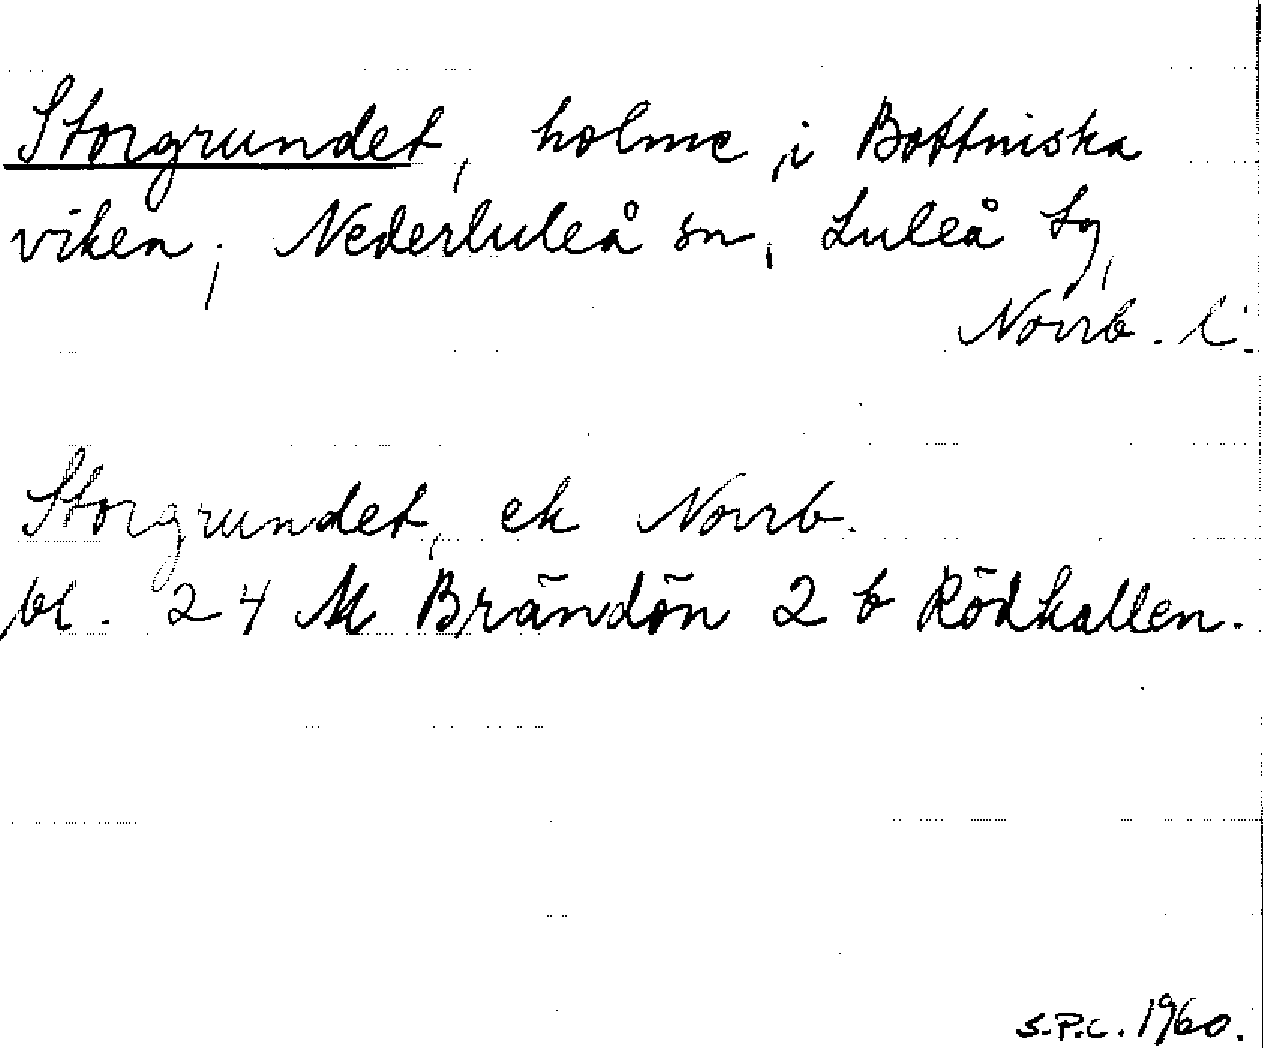 Storgrundet, holme, i Bottniska
viken, Nederluleå sn, Luleå tg,
Norrb. l.
Storgrundet, ek Norrb.
bl. 24 M Brändön 2 b Rödkallen.
S.P.C. 1960.